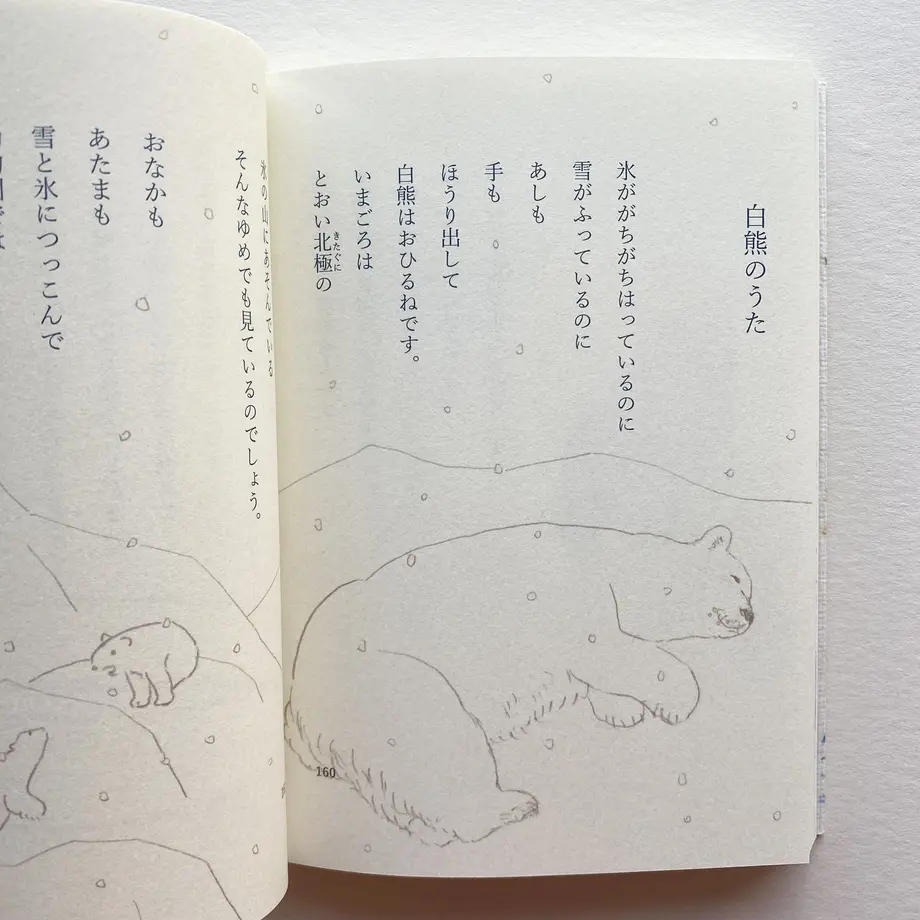 白熊のうた
氷ががちがちはっているのに
雪がふっているのに
あしも
手も
ほうり出して
白熊はおひるねです。
いまごろは
とおい北極の
きたぐに
160
氷の山にあそんでいる
そんなゆめでも見ているのでしょう。
おなかも
あたまも
雪と氷につっこんで